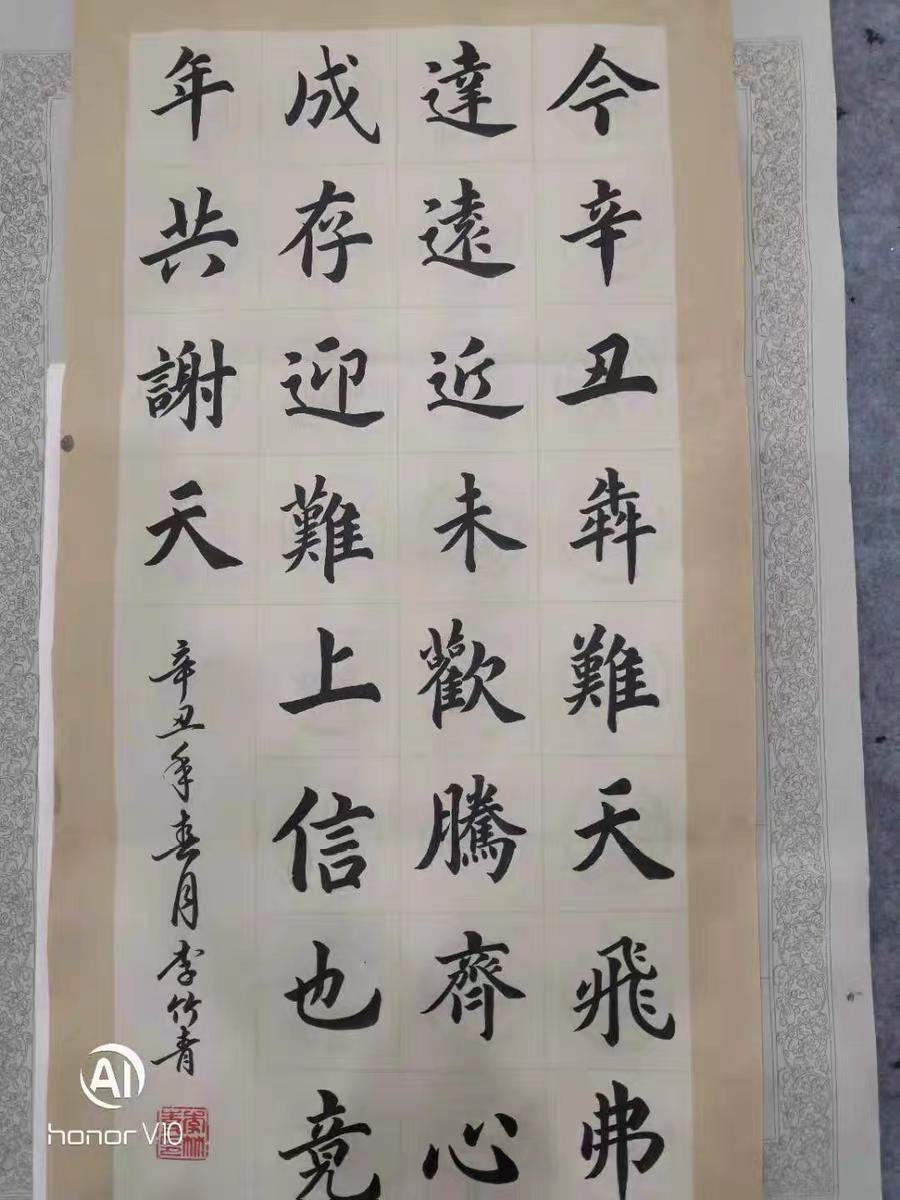 今辛丑犇難天飛弗
達遠近未歡騰齊心
成存迎難上信也竟
年共謝天
辛丑年春月李竹青
AI
honor V10